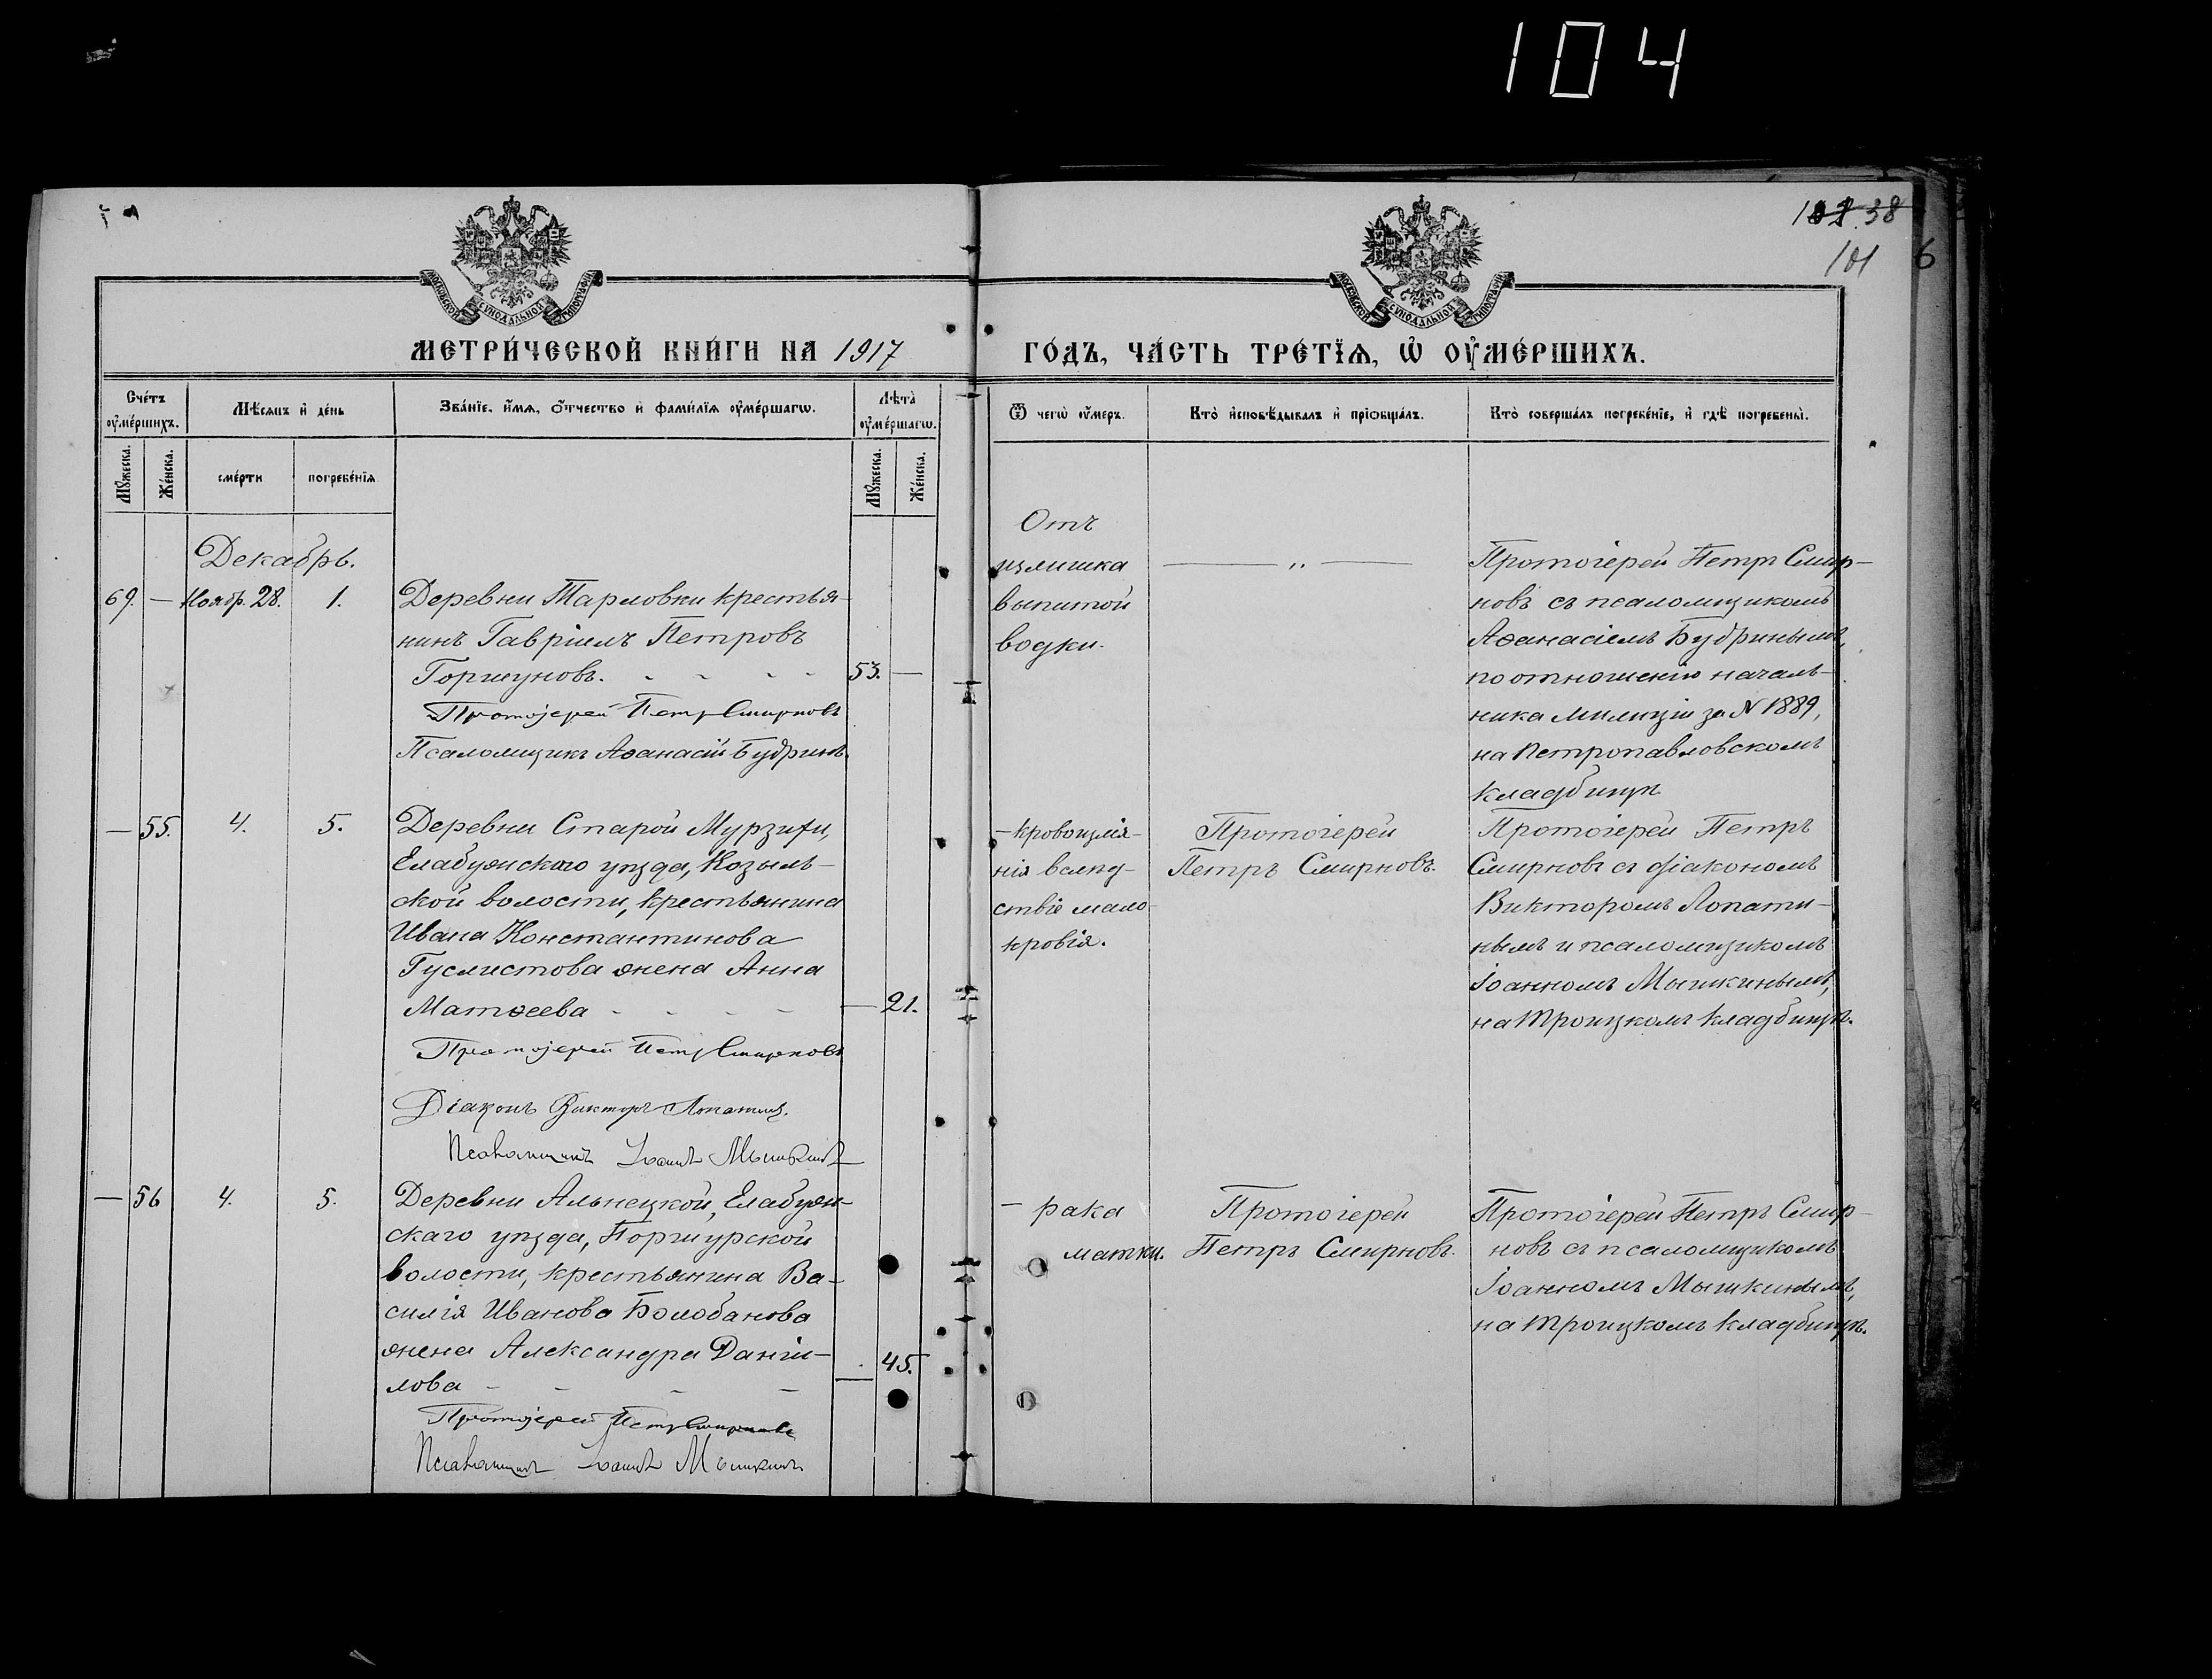 104
102.38
101
6
МОСКОВСКОЙ СѴНОДАЛЬНОЙ ТИПОГРАФІИ
МОСКОВСКОЙ СѴНОДАЛЬНОЙ ТИПОГРАФІИ
МЕТРИ́ЧЕСКОЙ КНИ́ГИ НА 1917
ГО́ДЪ, ЧА́СТЬ ТРЕ́ТЇѦ, Ѡ҆ ОУ҆МЕ́РШИХЪ.
Сче́тъ оу҆ме́ршихъ.
Мѣ́сѧцъ и҆ де́нь
Зва́нїе, и҆́мѧ, ѻ҆́тчество и҆ фами́лїѧ оу҆ме́ршагѡ.
Лѣ́та оу҆ме́ршагѡ.
Ѿ чегѡ̀ оу҆́меръ.
Кто̀ и҆сповѣ́дывалъ и҆ прїѡбща́лъ.
Кто̀ соверша́лъ погребе́нїе, и҆ гдѣ̀ погребены̀.
Мꙋ́жеска.
Же́нска.
сме́рти
погребе́нїѧ
Мꙋ́жеска.
Же́нска.
Декабрь.
69. — Ноябр. 28. 1.
Деревни Тарловки крестья-
нинъ Гавріилъ Петровъ
Горшуновъ. - - - - 53. —
Протоіерей Петръ Смирновъ
Псаломщикъ Аѳанасій Будринъ.
Отъ
излишка
выпитой
водки.
— „ —
Протоіерей Петръ Смир-
новъ съ псаломщикомъ
Аѳанасіемъ Будринымъ,
по отношенію началь-
ника милиціи за № 1889,
на Петропавловскомъ
кладбищѣ
— 55. 4. 5.
Деревни Старой Мурзихи,
Елабужскаго уѣзда, Козыль-
ской волости, крестьянина
Ивана Константинова
Гуслистова жена Анна
Матѳеева - - - - — 21.
Протоіерей Петръ Смирновъ
Діаконъ Викторъ Лопатинъ.
Псаломщикъ Іоаннъ Мышкинъ
— кровоизлія-
нія вслѣд-
ствіе мало-
кровія.
Протоіерей
Петръ Смирновъ.
Протоіерей Петръ
Смирновъ съ діакономъ
Викторомъ Лопати-
нымъ и псаломщикомъ
Іоанномъ Мышкинымъ,
на Троицкомъ кладбищѣ.
— 56 4. 5.
Деревни Альнецкой, Елабуж-
скаго уѣзда, Поршурской
волости, крестьянина Ва-
силія Иванова Болобанова
жена Александра Даніи-
лова - - - - — 45.
Протоіерей Петръ Смирновъ
Псаломщикъ Іоаннъ Мышкинъ
— рака
матки.
Протоіерей
Петръ Смирновъ.
Протоіерей Петръ Смир-
новъ съ псаломщикомъ
Іоанномъ Мышкинымъ,
на Троицкомъ кладбищѣ.